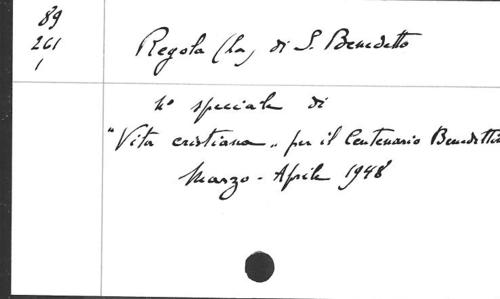 89
261
1
Regola (La) di S. Benedetto
N° speciale di
"Vita cristiana" per il Centenario Benedettin
Marzo - Aprile 1948